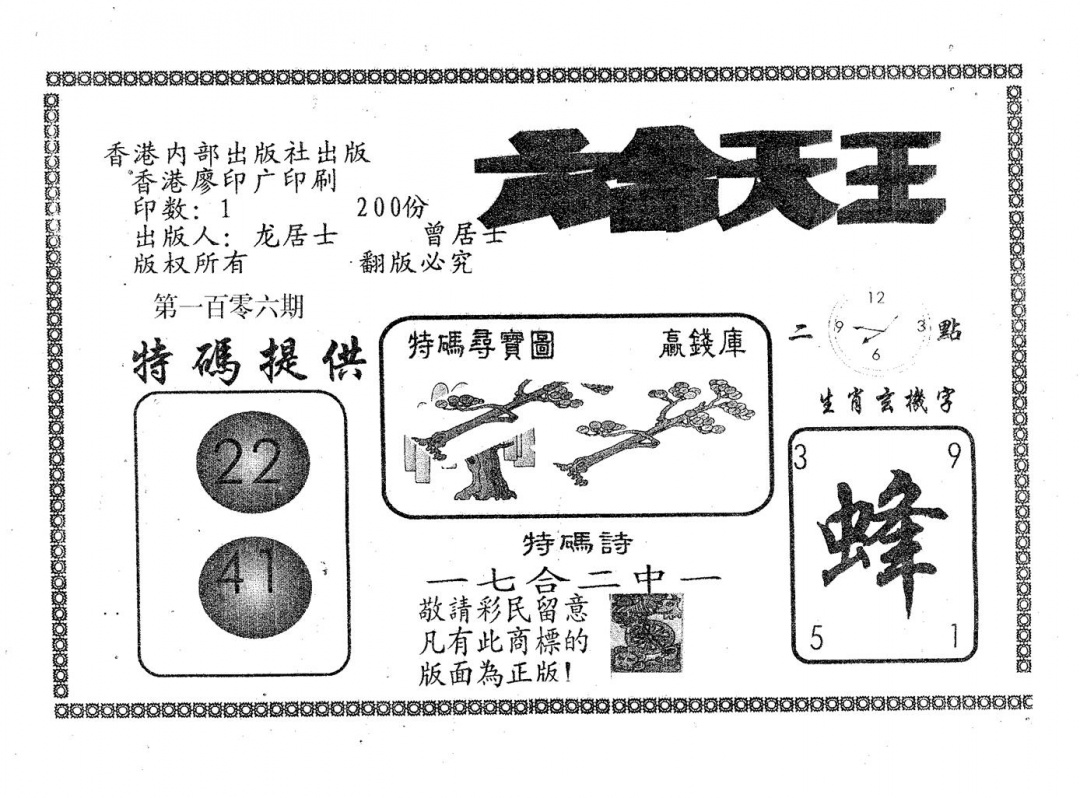 六合天王
香港内部出版社出版
香港廖印广印刷
印数: 1 200份
出版人: 龙居士 曾居士
版权所有 翻版必究
第一百零六期
特碼提供
22
41
特碼尋寶圖 贏錢庫
特碼詩
一七合二中一
敬請彩民留意
凡有此商標的
版面為正版!
二 點
12
9 3
6
生肖玄機字
3 9
蜂
5 1